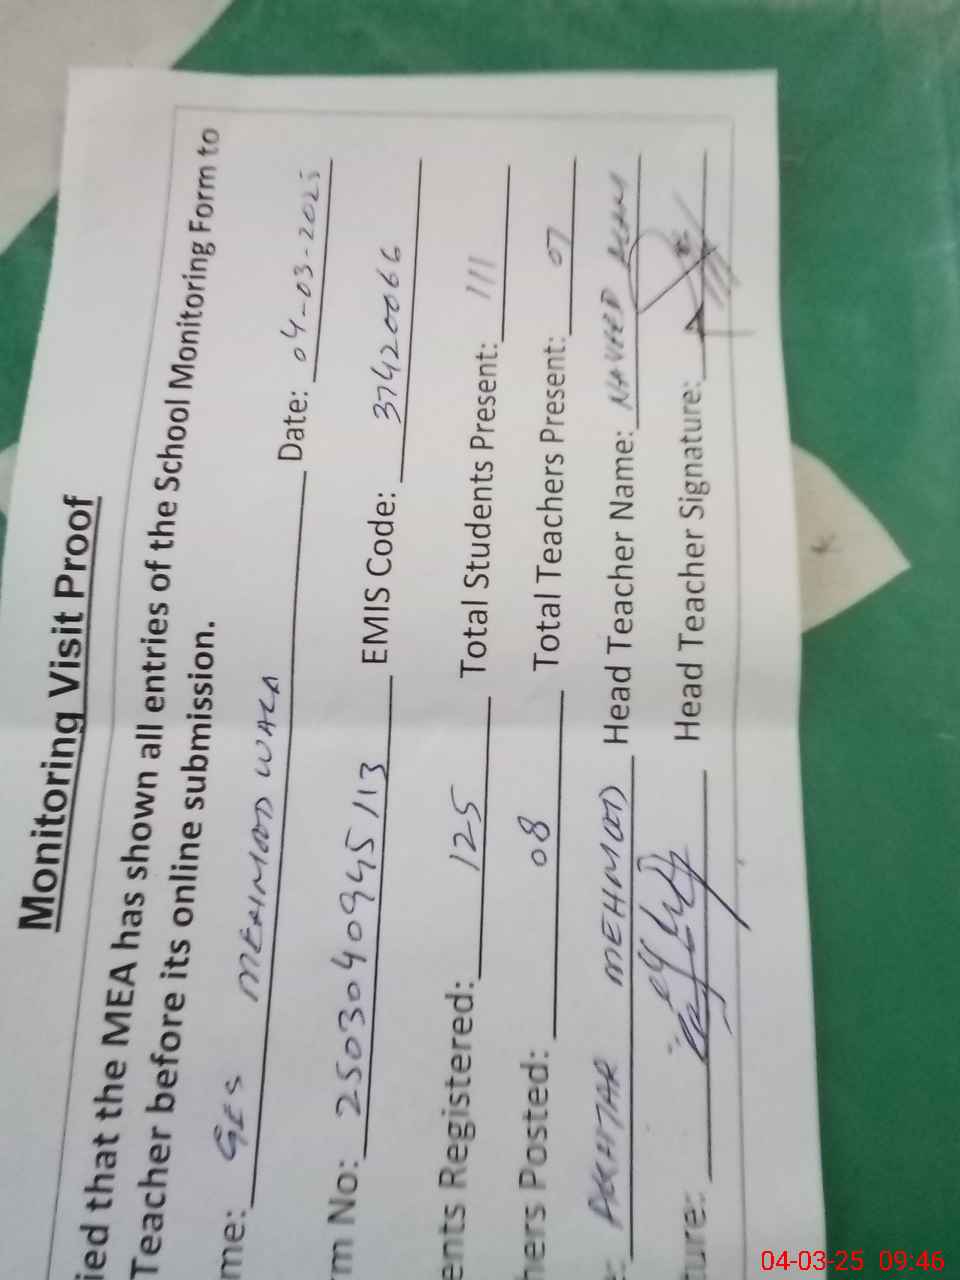 Monitoring Visit Proof
ied that the MEA has shown all entries of the School Monitoring Form to
Teacher before its online submission.
me: GES MEHMOOD WALA Date: 04-03-2025
rm No: 25030409945113 EMIS Code: 37420066
ents Registered: 125 Total Students Present: 111
hers Posted: 08 Total Teachers Present: 07
: MEHMOOD Head Teacher Name: NAVEED
ture: Head Teacher Signature:
04-03-25 09:46